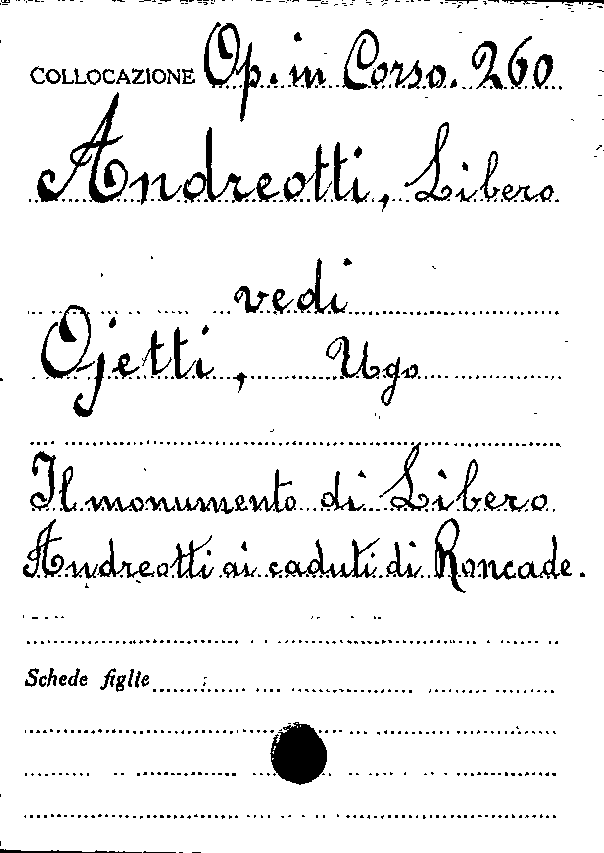 COLLOCAZIONE Op. in Corso. 260
Andreotti, Libero
vedi
Ojetti, Ugo
Il monumento di Libero
Andreotti ai caduti di Roncade.
Schede figlie